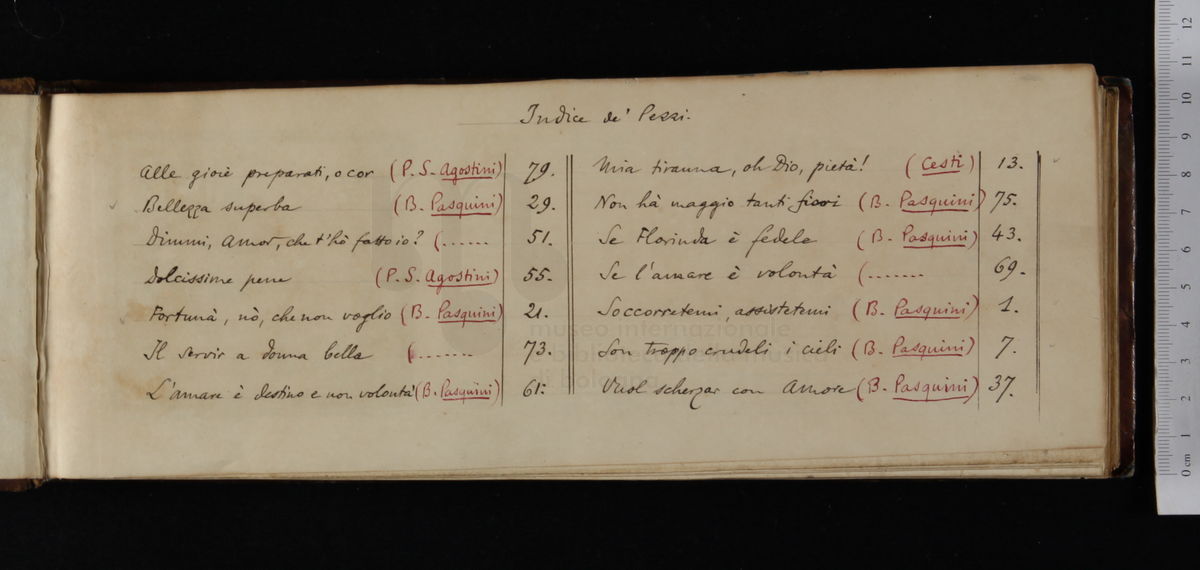 Indice de' Pezzi.
Alle gioie preparati, o cor (P. S. Agostini) 79.
Bellezza superba (B. Pasquini) 29.
Dimmi, Amor, che t'hò fatto io? (....... 51.
Dolcissime pene (P. S. Agostini) 55.
Fortuna, nò, che non voglio (B. Pasquini) 21.
Il servir a donna bella (....... 73.
L'amare è destino e non volontà (B. Pasquini) 61.
Mia tiranna, oh Dio, pietà! (Cesti) 13.
Non hà maggio tanti fiori (B. Pasquini) 75.
Se Florinda è fedele (B. Pasquini) 43.
Se l'amare è volontà (....... 69.
Soccorretemi, assistetemi (B. Pasquini) 1.
Son troppo crudeli i cieli (B. Pasquini) 7.
Vuol scherzar con Amore (B. Pasquini) 37.
museo internazionale
di bologna
0 cm 1 2 3 4 5 6 7 8 9 10 11 12